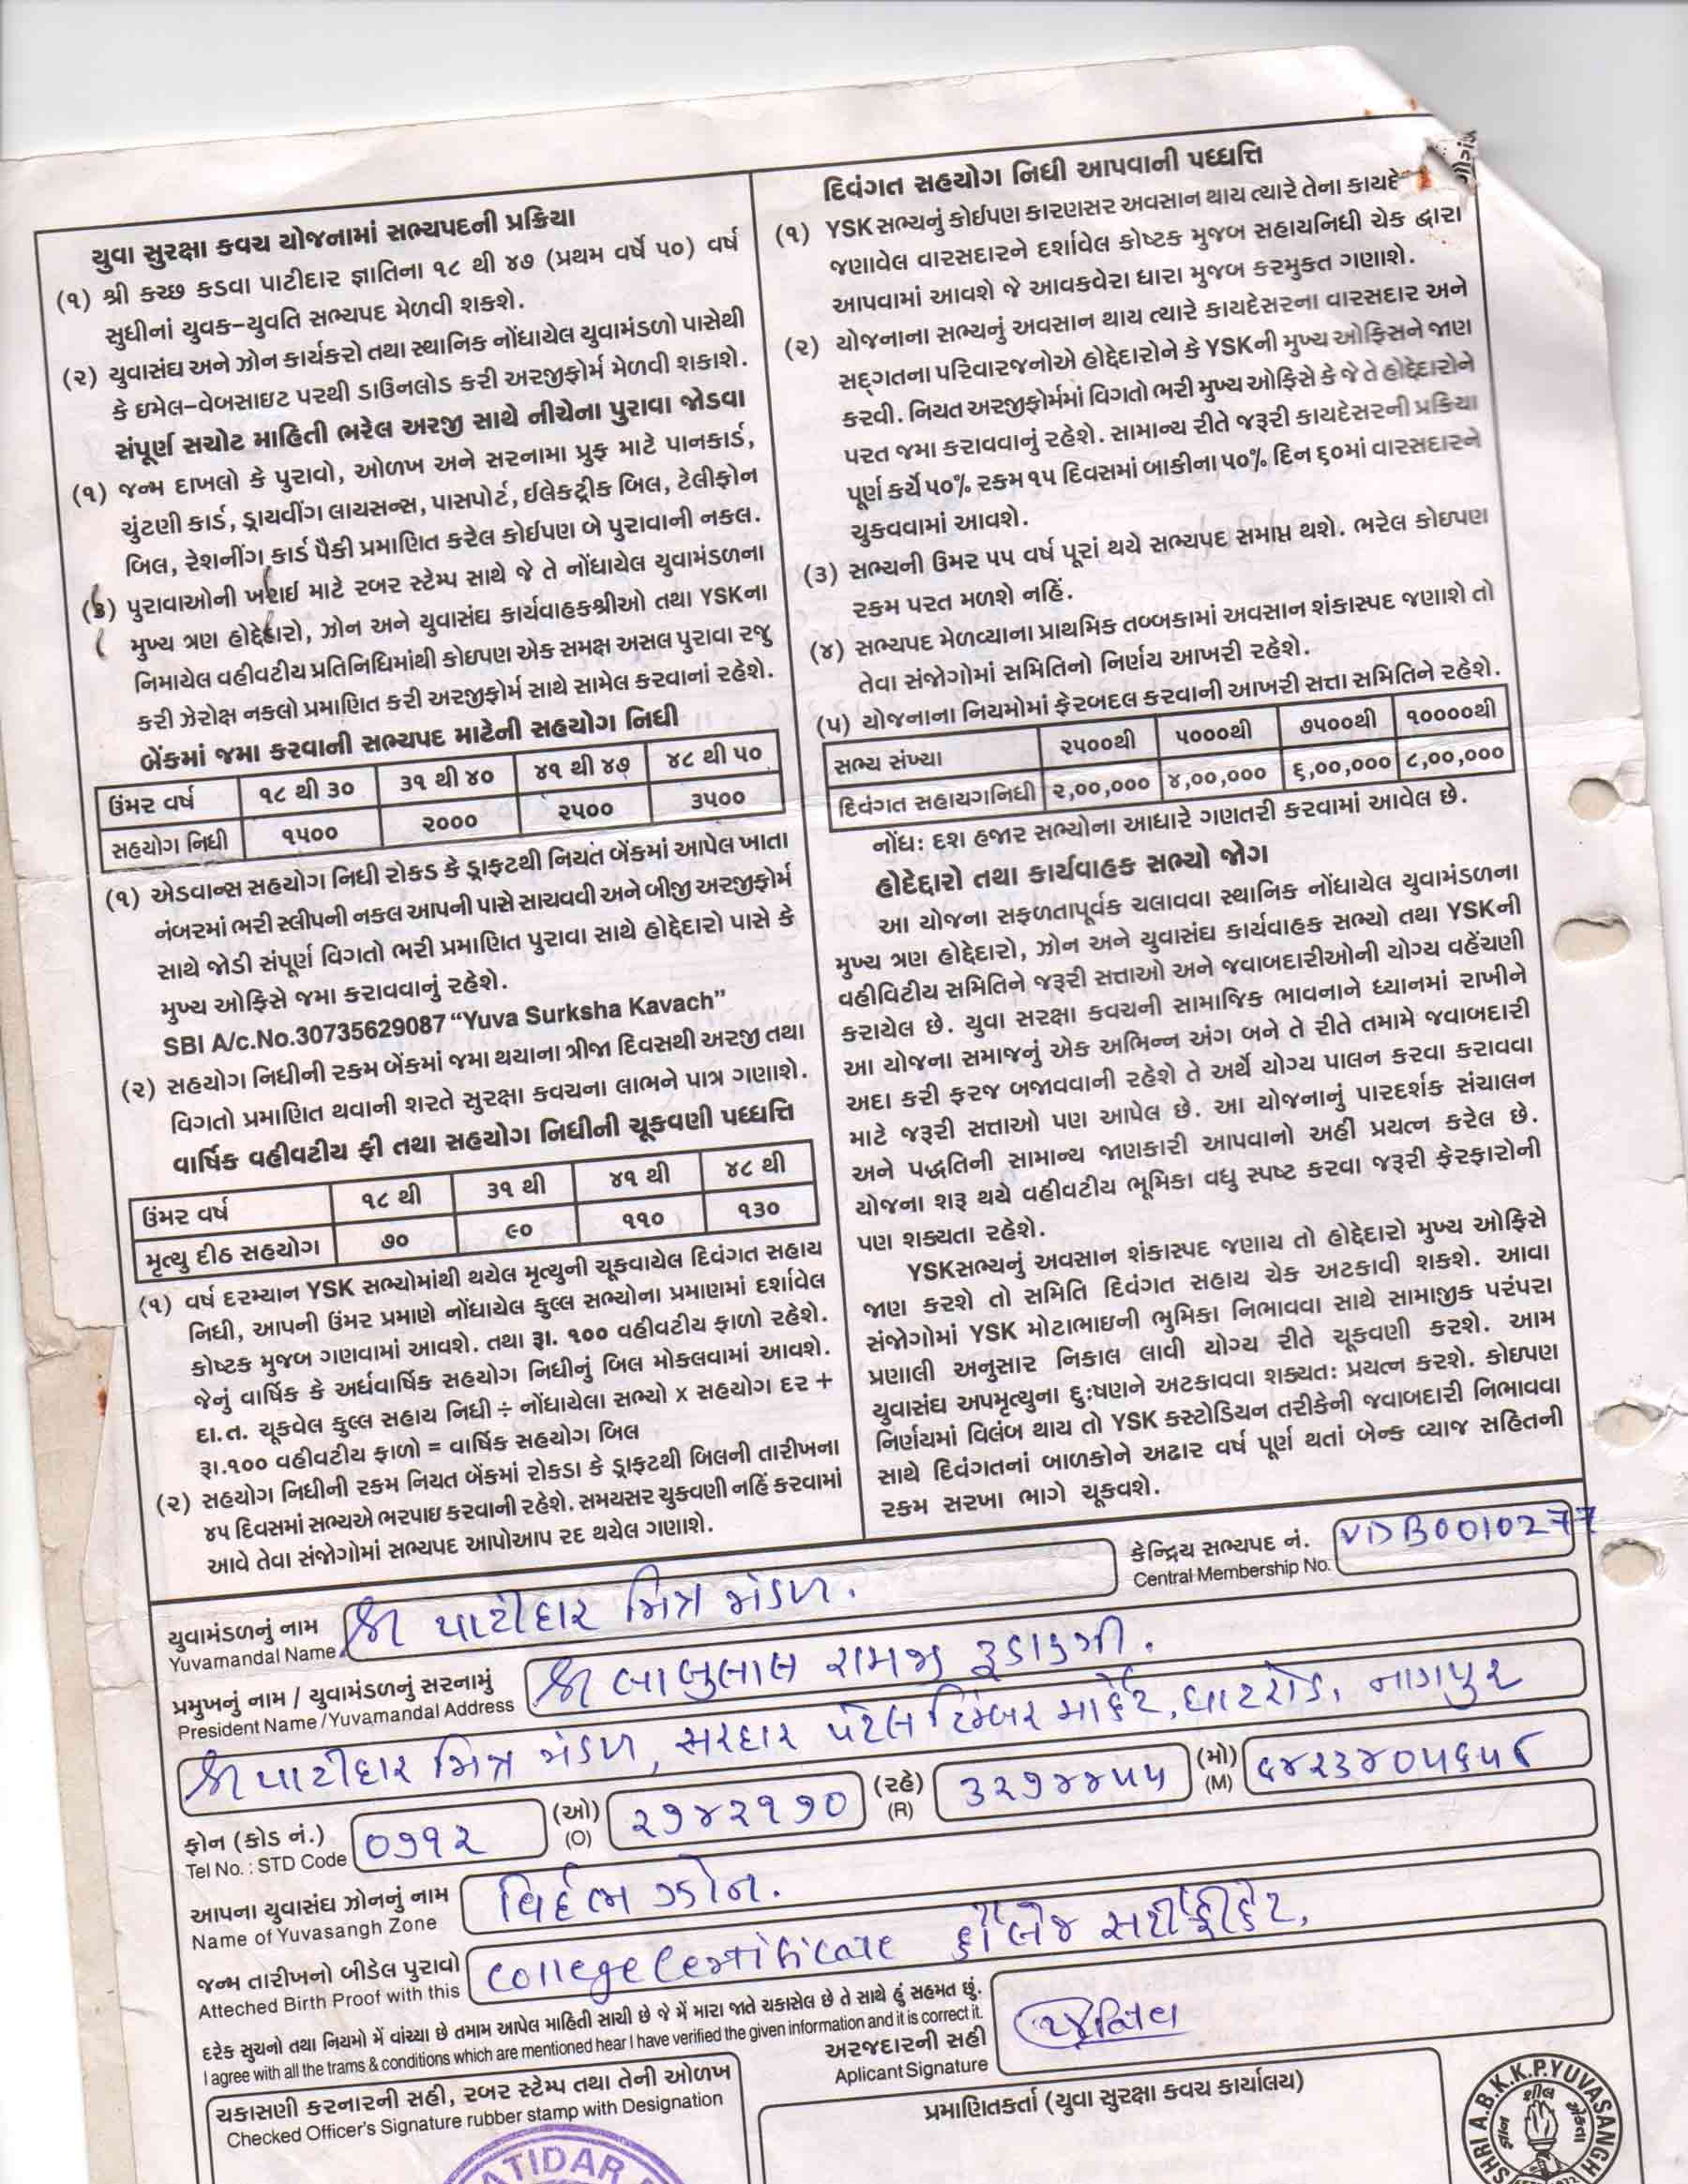 યુવા સુરક્ષા કવચ યોજનામાં સભ્યપદની પ્રક્રિયા
(૧) શ્રી કચ્છ કડવા પાટીદાર જ્ઞાતિના ૧૮ થી ૪૭ (પ્રથમ વર્ષે ૫૦) વર્ષ
સુધીનાં યુવક-યુવતિ સભ્યપદ મેળવી શકશે.
(૨) યુવાસંઘ અને ઝોન કાર્યકરો તથા સ્થાનિક નોંધાયેલ યુવામંડળો પાસેથી
કે ઇમેલ-વેબસાઇટ પરથી ડાઉનલોડ કરી અરજીફોર્મ મેળવી શકાશે.
સંપૂર્ણ સચોટ માહિતી ભરેલ અરજી સાથે નીચેના પુરાવા જોડવા
(૧) જન્મ દાખલો કે પુરાવો, ઓળખ અને સરનામા પ્રુફ માટે પાનકાર્ડ,
ચુંટણી કાર્ડ, ડ્રાયવીંગ લાયસન્સ, પાસપોર્ટ, ઈલેક્ટ્રીક બિલ, ટેલીફોન
બિલ, રેશનીંગ કાર્ડ પૈકી પ્રમાણિત કરેલ કોઈપણ બે પુરાવાની નકલ.
પુરાવાઓની ખરાઈ માટે રબર સ્ટેમ્પ સાથે જે તે નોંધાયેલ યુવામંડળના
મુખ્ય ત્રણ હોદ્દેદારો, ઝોન અને યુવાસંઘ કાર્યવાહકશ્રીઓ તથા YSKના
નિમાયેલ વહીવટીય પ્રતિનિધિમાંથી કોઇપણ એક સમક્ષ અસલ પુરાવા રજુ
કરી ઝેરોક્ષ નકલો પ્રમાણિત કરી અરજીફોર્મ સાથે સામેલ કરવાનાં રહેશે.
બેંકમાં જમા કરવાની સભ્યપદ માટેની સહયોગ નિધી
ઉંમર વર્ષ ૧૮ થી ૩૦ ૩૧ થી ૪૦ ૪૧ થી ૪૭ ૪૮ થી ૫૦
સહયોગ નિધી ૧૫૦૦ ૨૦૦૦ ૨૫૦૦ ૩૫૦૦
(૧) એડવાન્સ સહયોગ નિધી રોકડ કે ડ્રાફટથી નિયત બેંકમાં આપેલ ખાતા
નંબરમાં ભરી સ્લીપની નકલ આપની પાસે સાચવવી અને બીજી અરજીફોર્મ
સાથે જોડી સંપૂર્ણ વિગતો ભરી પ્રમાણિત પુરાવા સાથે હોદ્દેદારો પાસે કે
મુખ્ય ઓફિસે જમા કરાવવાનું રહેશે.
SBI A/c.No.30735629087 “Yuva Surksha Kavach”
(૨) સહયોગ નિધીની રકમ બેંકમાં જમા થયાના ત્રીજા દિવસથી અરજી તથા
વિગતો પ્રમાણિત થવાની શરતે સુરક્ષા કવચના લાભને પાત્ર ગણાશે.
વાર્ષિક વહીવટીય ફી તથા સહયોગ નિધીની ચૂકવણી પધ્ધતિ
ઉંમર વર્ષ ૧૮ થી ૩૧ થી ૪૧ થી ૪૮ થી
મૃત્યુ દીઠ સહયોગ ૭૦ ૯૦ ૧૧૦ ૧૩૦
(૧) વર્ષ દરમ્યાન YSK સભ્યોમાંથી થયેલ મૃત્યુની ચૂકવાયેલ દિવંગત સહાય
નિધી, આપની ઉંમર પ્રમાણે નોંધાયેલ કુલ્લ સભ્યોના પ્રમાણમાં દર્શાવેલ
કોષ્ટક મુજબ ગણવામાં આવશે. તથા રૂા. ૧૦૦ વહીવટીય ફાળો રહેશે.
જેનું વાર્ષિક કે અર્ધવાર્ષિક સહયોગ નિધીનું બિલ મોકલવામાં આવશે.
દા.ત. ચૂકવેલ કુલ્લ સહાય નિધી ÷ નોંધાયેલા સભ્યો x સહયોગ દર +
રૂા.૧૦૦ વહીવટીય ફાળો = વાર્ષિક સહયોગ બિલ
(૨) સહયોગ નિધીની રકમ નિયત બેંકમાં રોકડા કે ડ્રાફટથી બિલની તારીખના
૪૫ દિવસમાં સભ્યએ ભરપાઇ કરવાની રહેશે. સમયસર ચુકવણી નહિં કરવામાં
આવે તેવા સંજોગોમાં સભ્યપદ આપોઆપ રદ થયેલ ગણાશે.
દિવંગત સહયોગ નિધી આપવાની પધ્ધતિ
(૧) YSK સભ્યનું કોઈપણ કારણસર અવસાન થાય ત્યારે તેના કાયદે
જણાવેલ વારસદારને દર્શાવેલ કોષ્ટક મુજબ સહાયનિધી ચેક દ્વારા
આપવામાં આવશે જે આવકવેરા ધારા મુજબ કરમુક્ત ગણાશે.
(૨) યોજનાના સભ્યનું અવસાન થાય ત્યારે કાયદેસરના વારસદાર અને
સદ્‌ગતના પરિવારજનોએ હોદ્દેદારોને કે YSKની મુખ્ય ઓફિસને જાણ
કરવી. નિયત અરજીફોર્મમાં વિગતો ભરી મુખ્ય ઓફિસે કે જે તે હોદ્દેદારોને
પરત જમા કરાવવાનું રહેશે. સામાન્ય રીતે જરૂરી કાયદેસરની પ્રક્રિયા
પૂર્ણ કર્યે ૫૦% રકમ ૧૫ દિવસમાં બાકીના ૫૦% દિન ૬૦માં વારસદારને
ચુકવવામાં આવશે.
(૩) સભ્યની ઉંમર ૫૫ વર્ષ પૂરાં થયે સભ્યપદ સમાપ્ત થશે. ભરેલ કોઇપણ
રકમ પરત મળશે નહિં.
(૪) સભ્યપદ મેળવ્યાના પ્રાથમિક તબ્બકામાં અવસાન શંકાસ્પદ જણાશે તો
તેવા સંજોગોમાં સમિતિનો નિર્ણય આખરી રહેશે.
(૫) યોજનાના નિયમોમાં ફેરબદલ કરવાની આખરી સત્તા સમિતિને રહેશે.
સભ્ય સંખ્યા ૨૫૦૦થી ૫૦૦૦થી ૭૫૦૦થી ૧૦૦૦૦થી
દિવંગત સહાયગનિધી ૨,૦૦,૦૦૦ ૪,૦૦,૦૦૦ ૬,૦૦,૦૦૦ ૮,૦૦,૦૦૦
નોંધ: દશ હજાર સભ્યોના આધારે ગણતરી કરવામાં આવેલ છે.
હોદેદ્દારો તથા કાર્યવાહક સભ્યો જોગ
આ યોજના સફળતાપૂર્વક ચલાવવા સ્થાનિક નોંધાયેલ યુવામંડળના
મુખ્ય ત્રણ હોદ્દેદારો, ઝોન અને યુવાસંઘ કાર્યવાહક સભ્યો તથા YSKની
વહીવિટીય સમિતિને જરૂરી સત્તાઓ અને જવાબદારીઓની યોગ્ય વહેંચણી
કરાયેલ છે. યુવા સરક્ષા કવચની સામાજિક ભાવનાને ધ્યાનમાં રાખીને
આ યોજના સમાજનું એક અભિન્ન અંગ બને તે રીતે તમામે જવાબદારી
અદા કરી ફરજ બજાવવાની રહેશે તે અર્થે યોગ્ય પાલન કરવા કરાવવા
માટે જરૂરી સત્તાઓ પણ આપેલ છે. આ યોજનાનું પારદર્શક સંચાલન
અને પદ્ધતિની સામાન્ય જાણકારી આપવાનો અહી પ્રયત્ન કરેલ છે.
યોજના શરૂ થયે વહીવટીય ભૂમિકા વધુ સ્પષ્ટ કરવા જરૂરી ફેરફારોની
પણ શક્યતા રહેશે.
YSKસભ્યનું અવસાન શંકાસ્પદ જણાય તો હોદ્દેદારો મુખ્ય ઓફિસે
જાણ કરશે તો સમિતિ દિવંગત સહાય ચેક અટકાવી શકશે. આવા
સંજોગોમાં YSK મોટાભાઇની ભુમિકા નિભાવવા સાથે સામાજીક પરંપરા
પ્રણાલી અનુસાર નિકાલ લાવી યોગ્ય રીતે ચૂકવણી કરશે. આમ
યુવાસંઘ અપમૃત્યુના દુ:ષણને અટકાવવા શક્યત: પ્રયત્ન કરશે. કોઇપણ
નિર્ણયમાં વિલંબ થાય તો YSK કસ્ટોડિયન તરીકેની જવાબદારી નિભાવવા
સાથે દિવંગતનાં બાળકોને અઢાર વર્ષ પૂર્ણ થતાં બેન્ક વ્યાજ સહિતની
રકમ સરખા ભાગે ચૂકવશે.
કેન્દ્રિય સભ્યપદ નં. VDB0010277
Central Membership No.
યુવામંડળનું નામ શ્રી પાટીદાર મિત્ર મંડળ.
Yuvamandal Name
પ્રમુખનું નામ / યુવામંડળનું સરનામું શ્રી બાબુલાલ રામજી રૂડાણી.
President Name /Yuvamandal Address
શ્રી પાટીદાર મિત્ર મંડળ, સરદાર પટેલ ટિમ્બર માર્કેટ, ઘાટરોડ, નાગપુર
ફોન (કોડ નં.) ૦૭૧૨ (ઓ) ૨૭૪૨૧૭૦ (રહે) ૩૨૭૪૪૫૫ (મો) ૯૪૨૩૪૦૫૬૫૮
Tel No. : STD Code (O) (R) (M)
આપના યુવાસંઘ ઝોનનું નામ વિર્દભ ઝોન.
Name of Yuvasangh Zone
જન્મ તારીખનો બીડેલ પુરાવો College Certificate કૉલેજ સર્ટીફીકેટ,
Atteched Birth Proof with this
દરેક સુચનો તથા નિયમો મેં વાંચ્યા છે તમામ આપેલ માહિતી સાચી છે જે મેં મારા જાતે ચકાસેલ છે તે સાથે હું સહમત છું.
I agree with all the trams & conditions which are mentioned hear I have verified the given information and it is correct it.
અરજદારની સહી
Aplicant Signature
ચકાસણી કરનારની સહી, રબર સ્ટેમ્પ તથા તેની ઓળખ
Checked Officer's Signature rubber stamp with Designation
પ્રમાણિતકર્તા (યુવા સુરક્ષા કવચ કાર્યાલય)
SHRI A.B.K.K.P.YUVASANGH
શીલ
એકતા
ATIDAR